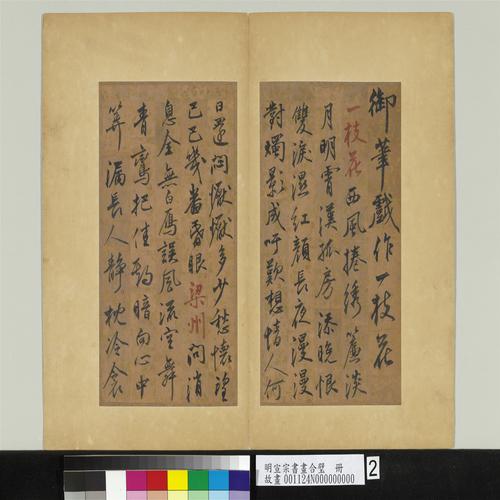 御筆戲作一枝花
一枝花西風捲綉簾淡
月明霄漢孤房添晚恨
雙淚濕紅顏長夜漫漫
對燭影成吁歎想情人何
日還悶懨懨多少愁懷望
巴巴幾番昏眼梁州問消
息全無白雁誤風流空舞
青鸞把佳期暗向心中
筭漏長人靜枕冷衾
明宣宗書畫合璧 冊
故畫001124N000000000
2